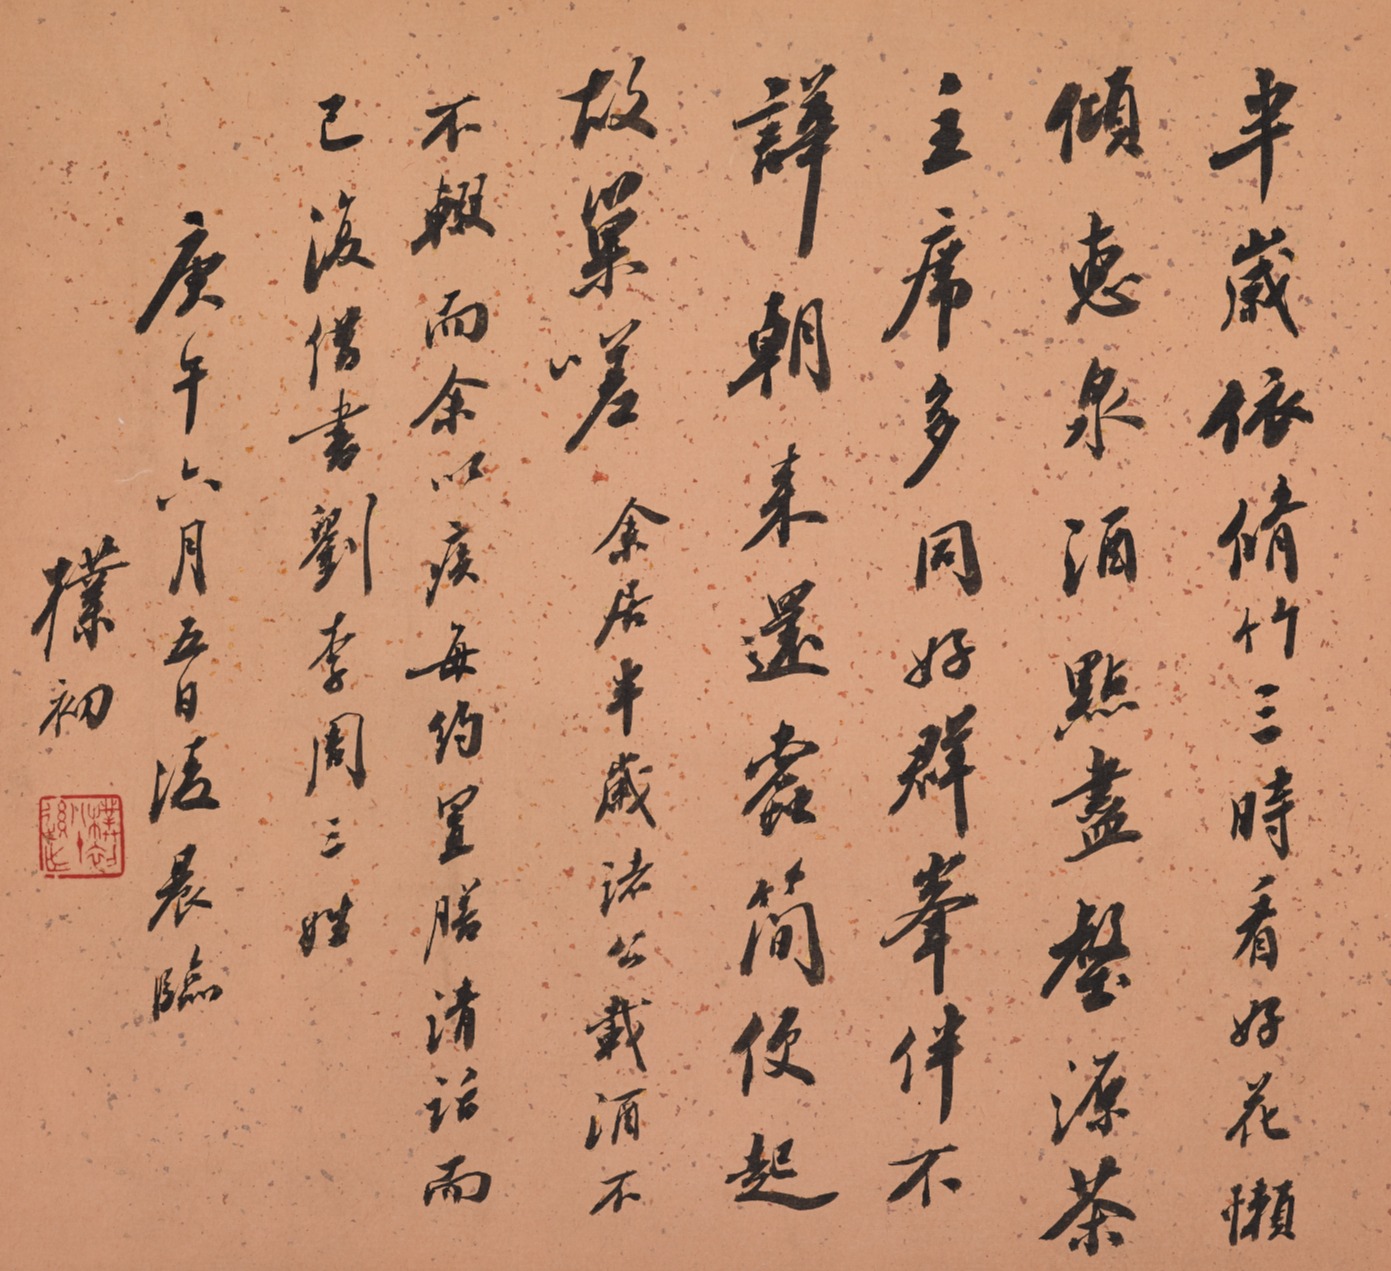 半歲依脩竹三時看好花懶
傾惠泉酒點盡壑源茶
主席多同好群峯伴不
譁朝來還蠹簡便起
故巢嗟 余居半歲諸公載酒不
不輟而余以疾每約置膳清話而
已復借書劉李周三姓
庚午六月五日淩晨臨
樸初